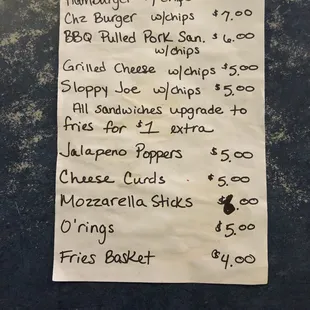 Hamburger w/chips
Chz Burger w/chips $7.00
BBQ Pulled Pork San. $6.00
w/chips
Grilled Cheese w/chips $5.00
Sloppy Joe w/chips $5.00
All sandwiches upgrade to
fries for $1 extra
Jalapeno Poppers $5.00
Cheese Curds . $5.00
Mozzarella Sticks $6.00
O'rings $5.00
Fries Basket $4.00